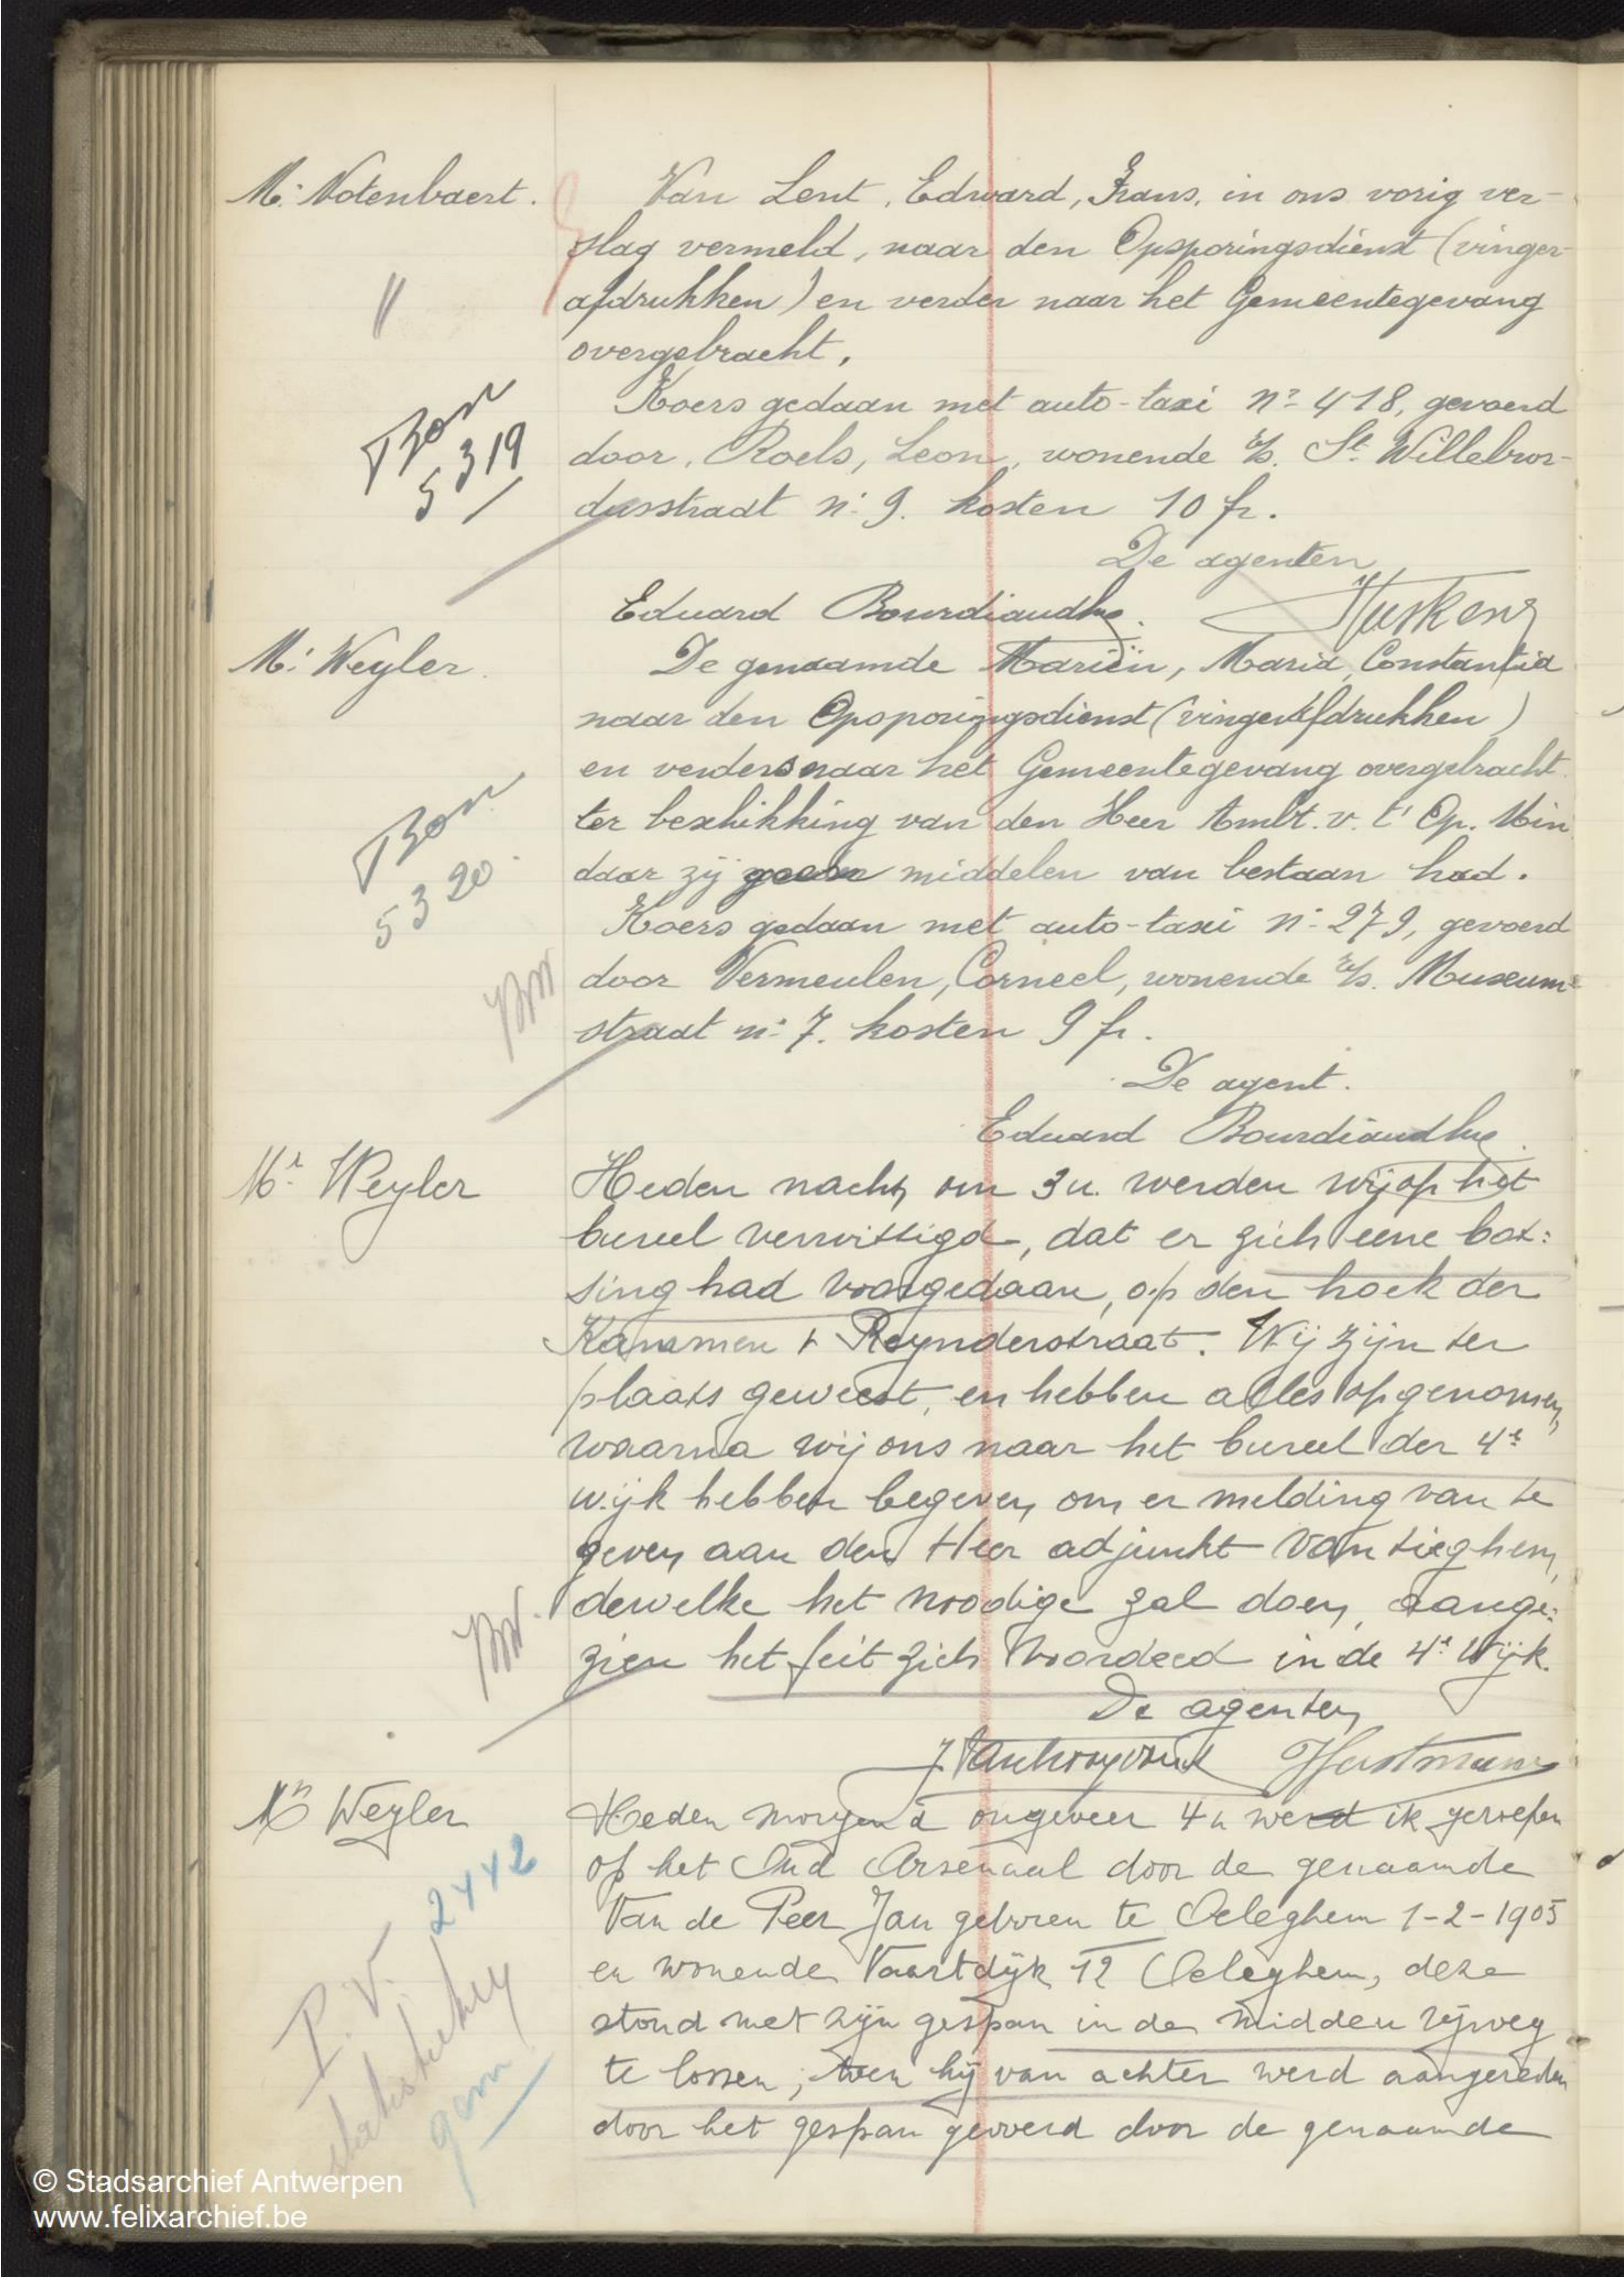 Mr. Notenbaert.
Van Lent, Edward, Frans, in ons vorig ver-
slag vermeld, naar den Opsporingsdienst (vinger-
afdrukken) en verder naar het Gemeentegevang
overgebracht.
Bon
5319
Koers gedaan met auto-taxi nr 418, gevoerd
door, Roels, Leon, wonende St. Willebror-
dusstraat n: 9. kosten 10 fr.
De agenten
Eduard
Mr. Weyler.
De genaamde Mariën, Maria, Constantia
naar den Opsporingsdienst (vingerafdrukken)
en verders naar het Gemeentegevang overgebracht
ter beschikking van den Heer Ambt. v. t' Op. Min
daar zij geen middelen van bestaan had.
Bon
5320.
Koers gedaan met auto-taxi n: 279, gevoerd
door Vermeulen, Corneel, wonende Museum-
straat n: 7. kosten 9 fr.
De agent.
Eduard
Mr. Weyler
Heden nacht om 3 u. werden wij op het
bureel verwittigd, dat er zich eene bot:
sing had voorgedaan, op den hoek der
Kammen & Reynderstraat. Wij zijn ter
plaats geweest, en hebben alles opgenomen,
waarna wij ons naar het bureel der 4e
wijk hebben begeven om er melding van te
geven aan den Heer adjunkt Van Tieghem,
dewelke het noodige zal doen, aange:
zien het feit zich voordeed in de 4e Wijk.
De agenten
Mr Weyler
Heden morgend ongeveer 4 u werd ik geroepen
op het Oud Arsenaal door de genaamde
Van de Peer Jan geboren te Oeleghem 1-2-1905
en wonende Vaartdijk 12 Oeleghem, deze
stond met zijn gespan in de midden rijweg
te lossen, toen hij van achter werd aangereden
door het gespan gevoerd door de genaamde
P.V. 2442
© Stadsarchief Antwerpen
www.felixarchief.be